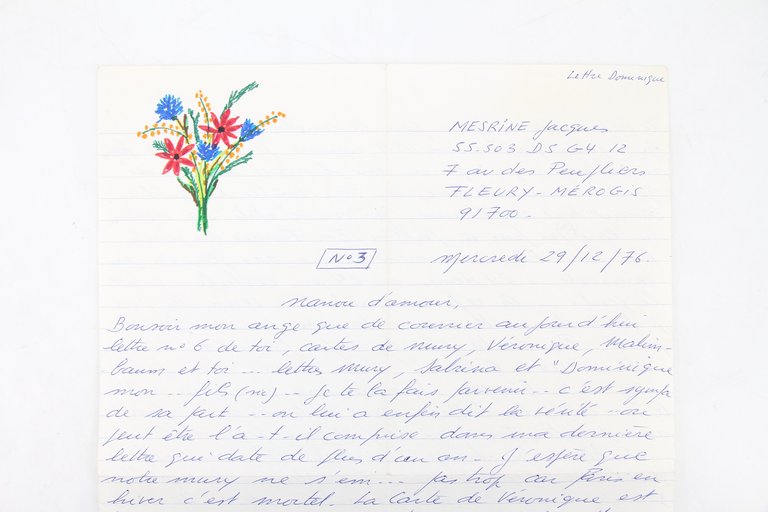 Lettre Dominique
MESRINE Jacques
55.503 D5 G4 12
7 av des Peupliers
FLEURY-MÉROGIS
91700.
N° 3
Mercredi 29/12/76.
nanou d'amour,
Bonsoir mon ange que de courrier aujourd'hui
lettre n° 6 de toi, cartes de Mury, Véronique, Malin-
baum et toi... lettres Mury, Sabrina et "Dominique
mon .. fils (sic) -- Je te la fais parvenir -- c'est sympa
de sa part -- on lui a enfin dit la vérité -- ou
peut être l'a-t-il comprise dans ma dernière
lettre qui date de plus d'un an - J'espère que
notre Mury ne s'em... pas trop car Paris en
hiver c'est mortel. La Carte de Véronique est